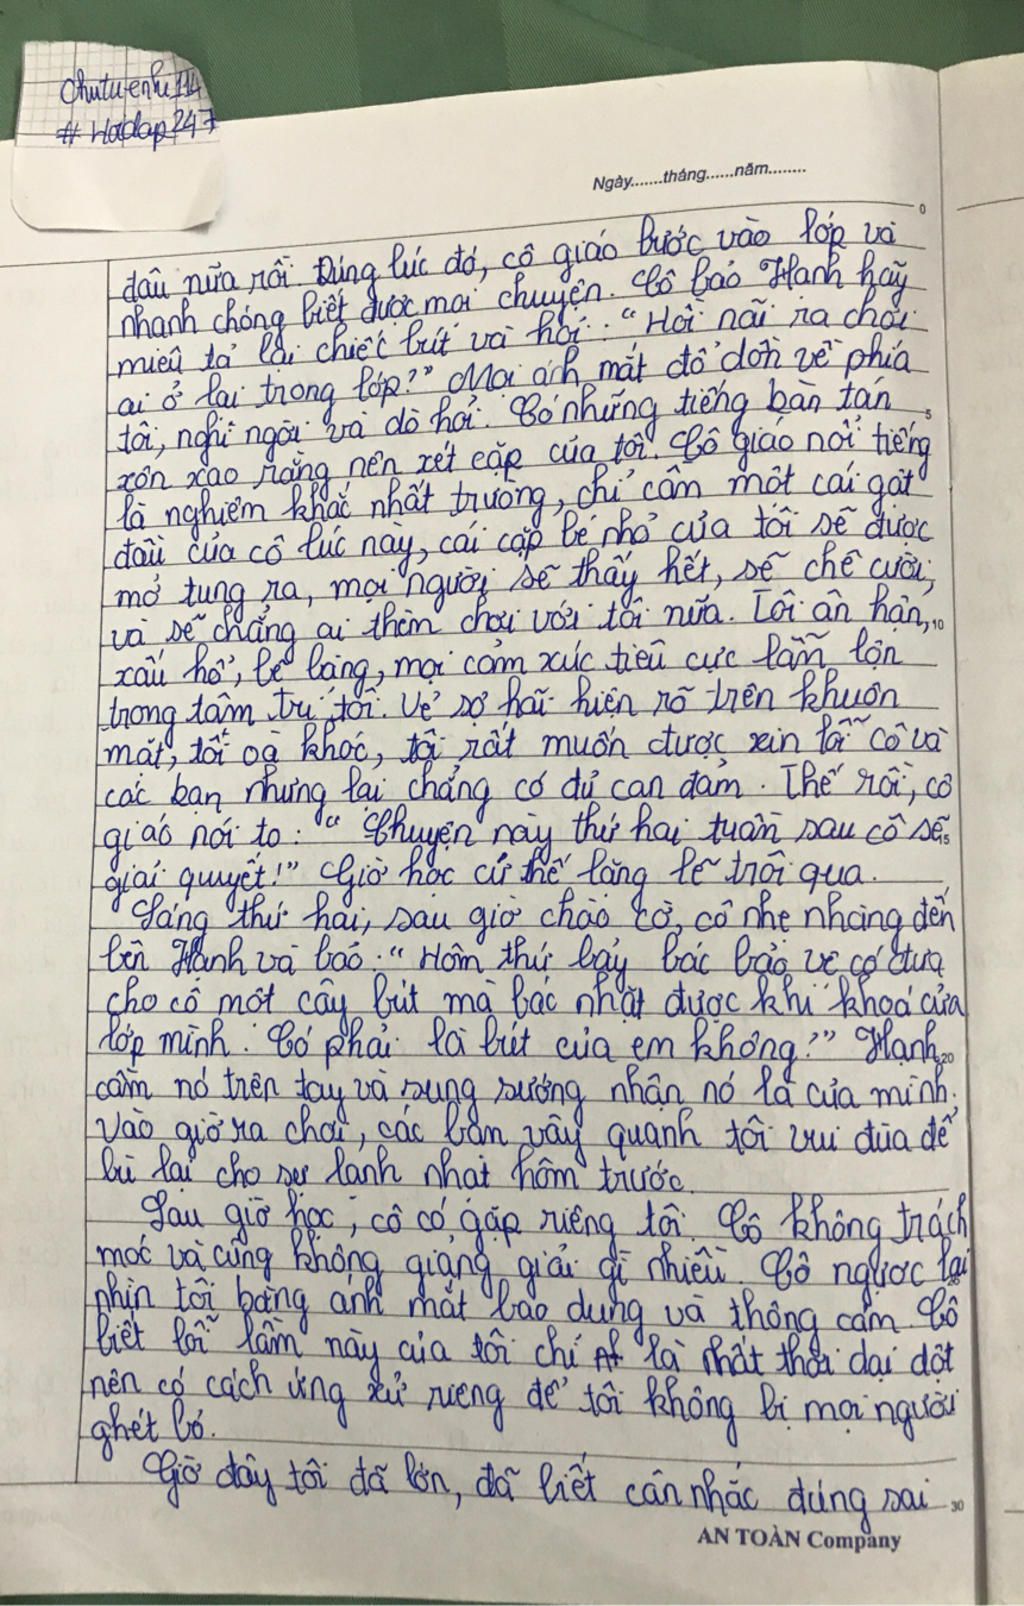 Chutuenhi114
# Hoidap247
Ngày.......tháng......năm........
0
đâu nữa rồi. Đúng lúc đó, cô giáo bước vào lớp và
nhanh chóng biết được mọi chuyện. Cô bảo Hạnh hãy
miêu tả lại chiếc bút và hỏi: "Hồi nãi ra chơi
ai ở lại trong lớp?" Mọi ánh mắt đổ dồn về phía
tôi, nghi ngời và dò hỏi. Có những tiếng bàn tán 5
xôn xao rằng nên xét cặp của tôi. Cô giáo nổi tiếng
là nghiêm khắc nhất trường, chỉ cần một cái gật
đầu của cô lúc này, cái cặp bé nhỏ của tôi sẽ được
mở tung ra, mọi người sẽ thấy hết, sẽ chê cười,
và sẽ chẳng ai thèm chơi với tôi nữa. Tôi ân hận, 10
xấu hổ, bẽ bàng, mọi cảm xúc tiêu cực lẫn lộn
trong tâm trí tôi. Vẻ sợ hãi hiện rõ trên khuôn
mặt, tôi oà khóc, tôi rất muốn được xin lỗi cô và
các bạn nhưng lại chẳng có đủ can đảm. Thế rồi, cô
giáo nói to: "Chuyện này thứ hai tuần sau cô sẽ 15
giải quyết!" Giờ học cứ thế lặng lẽ trôi qua.
Sáng thứ hai, sau giờ chào cờ, cô nhẹ nhàng đến
bên Hạnh và bảo: "Hôm thứ bảy bác bảo vệ có đưa
cho cô một cây bút mà bác nhặt được khi khoá cửa
lớp mình. Có phải là bút của em không?" Hạnh 20
cầm nó trên tay và sung sướng nhận nó là của mình.
Vào giờ ra chơi, các bạn vây quanh tôi vui đùa để
bù lại cho sự lạnh nhạt hôm trước.
Sau giờ học, cô có gặp riêng tôi. Cô không trách
móc và cũng không giảng giải gì nhiều. Cô ngược lại
nhìn tôi bằng ánh mắt bao dung và thông cảm. Cô
biết lỗi lầm này của tôi chỉ là nhất thời dại dột
nên có cách ứng xử riêng để tôi không bị mọi người
ghét bỏ.
Giờ đây tôi đã lớn, đã biết cân nhắc đúng sai 30
AN TOÀN Company